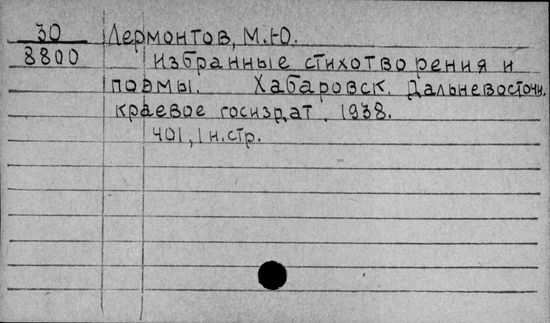 30 Лермонтов, М.Ю.
8800 Избранные стихотворения и
поэмы. Хабаровск. Дальневосточн.
краевое госиздат. 1938.
401, 1 н.стр.